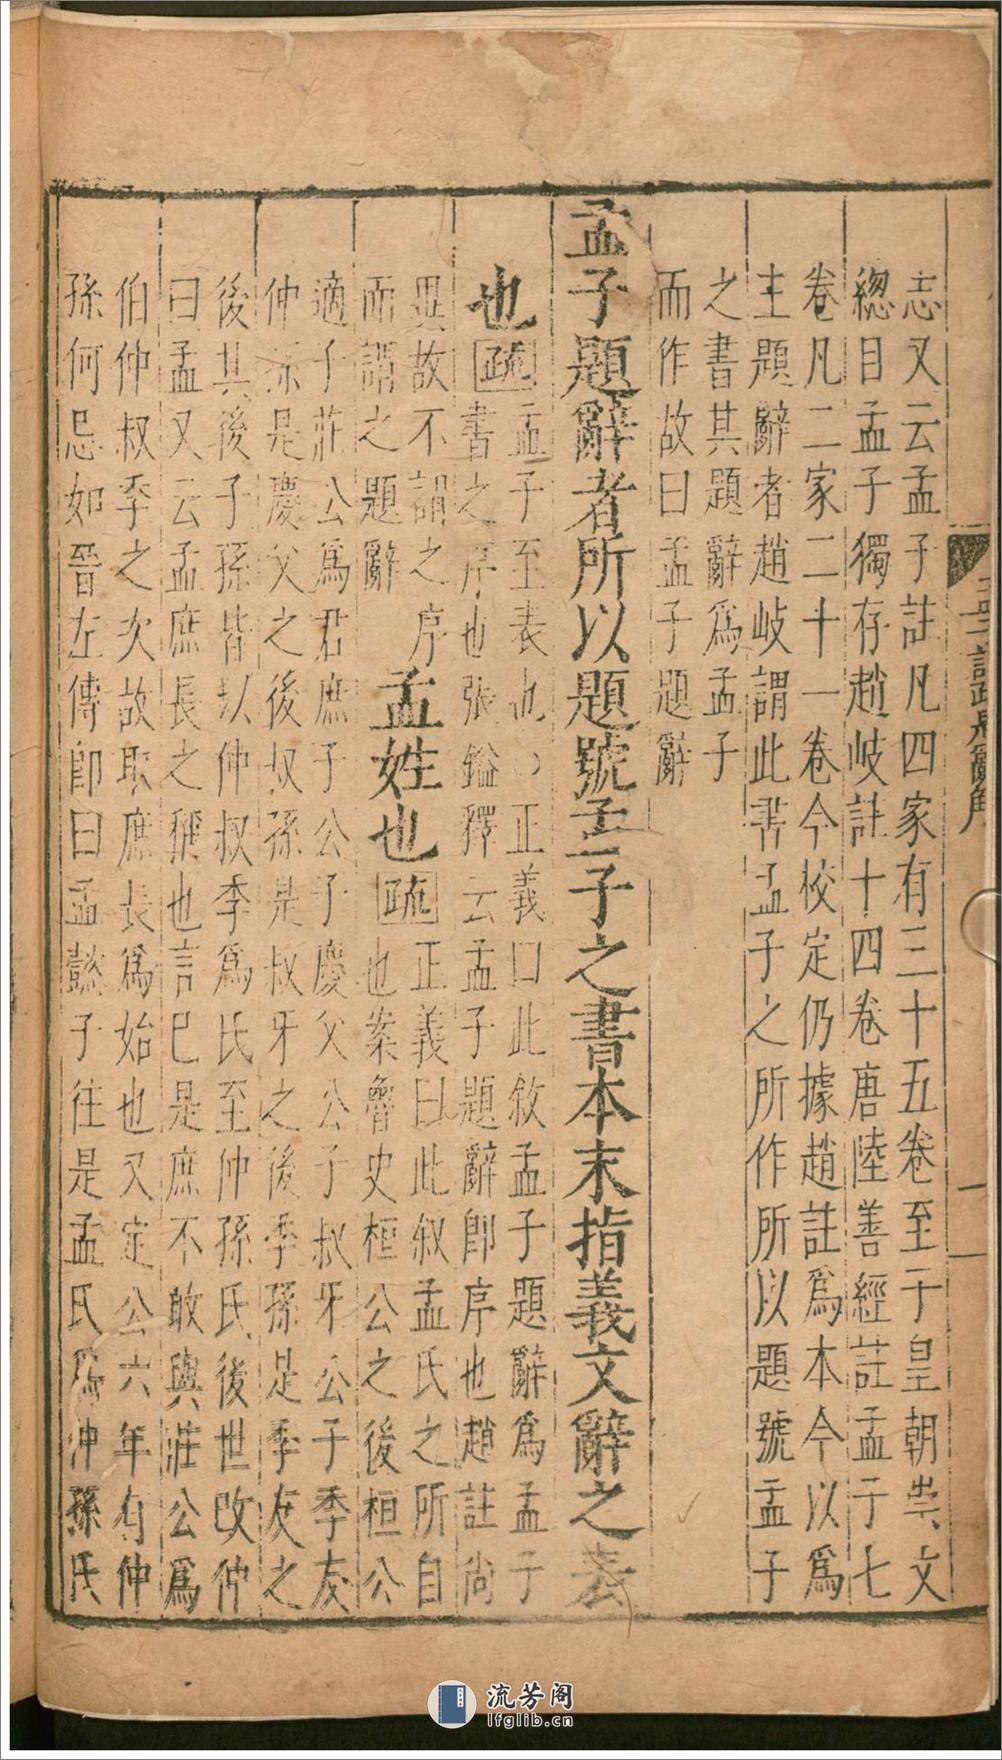 志又云孟子註凡四家有三十五卷至于皇朝崇文
總目孟子獨存趙岐註十四卷唐陸善經註孟子七
卷凡二家二十一卷今校定仍據趙註爲本今以爲
主題辭者趙岐謂此書孟子之所作所以題號孟子
之書其題辭爲孟子
而作故曰孟子題辭
孟子題辭者所以題號孟子之書本末指義文辭之表
也
疏
孟子至表也○正義曰此敘孟子題辭爲孟子
書之序也張鎰釋云孟子題辭卽序也趙註尚
異故不謂之序
而謂之題辭
孟姓也
疏
正義曰此叙孟氏之所自
也案魯史桓公之後桓公
適子莊公爲君庶子公子慶父公子叔牙公子季友
仲孫是慶父之後叔孫是叔牙之後季孫是季友之
後其後子孫皆以仲叔季爲氏至仲孫氏後世改仲
曰孟又云孟庶長之稱也言已是庶不敢與莊公爲
伯仲叔季之次故取庶長爲始也又定公六年有仲
孫何忌如晉左傳卽曰孟懿子往是孟氏爲仲孫氏
一
流芳阁
lfglib.cn